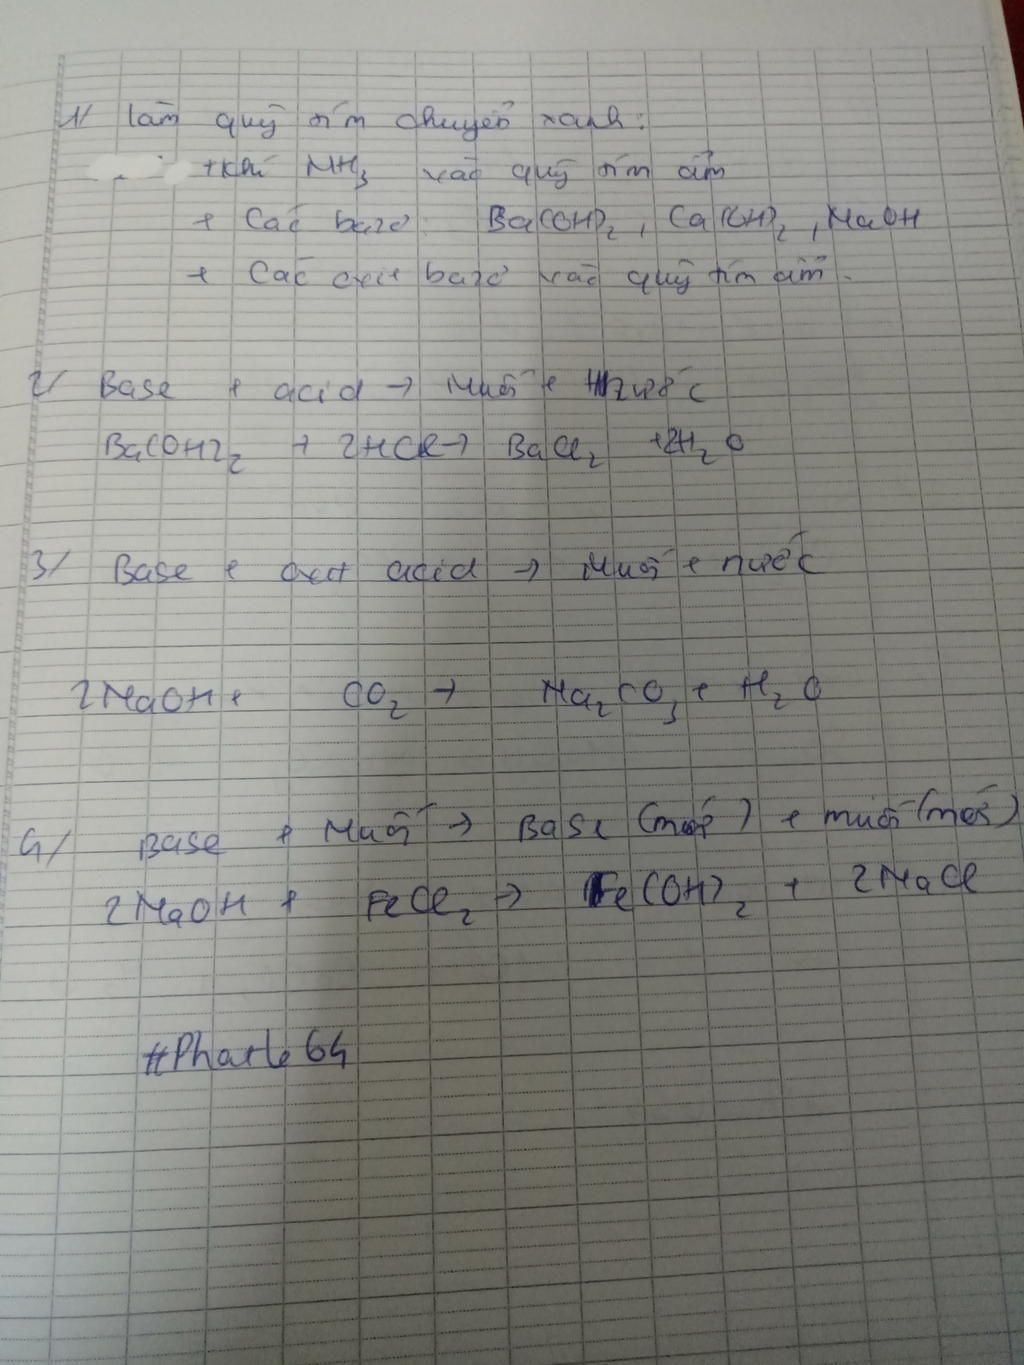 1/ làm quỳ tím chuyển xanh:
+ khí NH3 vào quỳ tím ẩm
+ Các bazơ: Ba(OH)2, Ca(OH)2, NaOH
+ Các oxit bazơ vào quỳ tím ẩm.
2/ Base + acid → Muối + nước
Ba(OH)2 + 2HCl → BaCl2 + 2H2O
3/ Base + oxit acid → Muối + nước
2NaOH + CO2 → Na2CO3 + H2O
4/ Base + Muối → Base (mới) + muối (mới)
2NaOH + FeCl2 → Fe(OH)2 + 2NaCl
#Phatle64